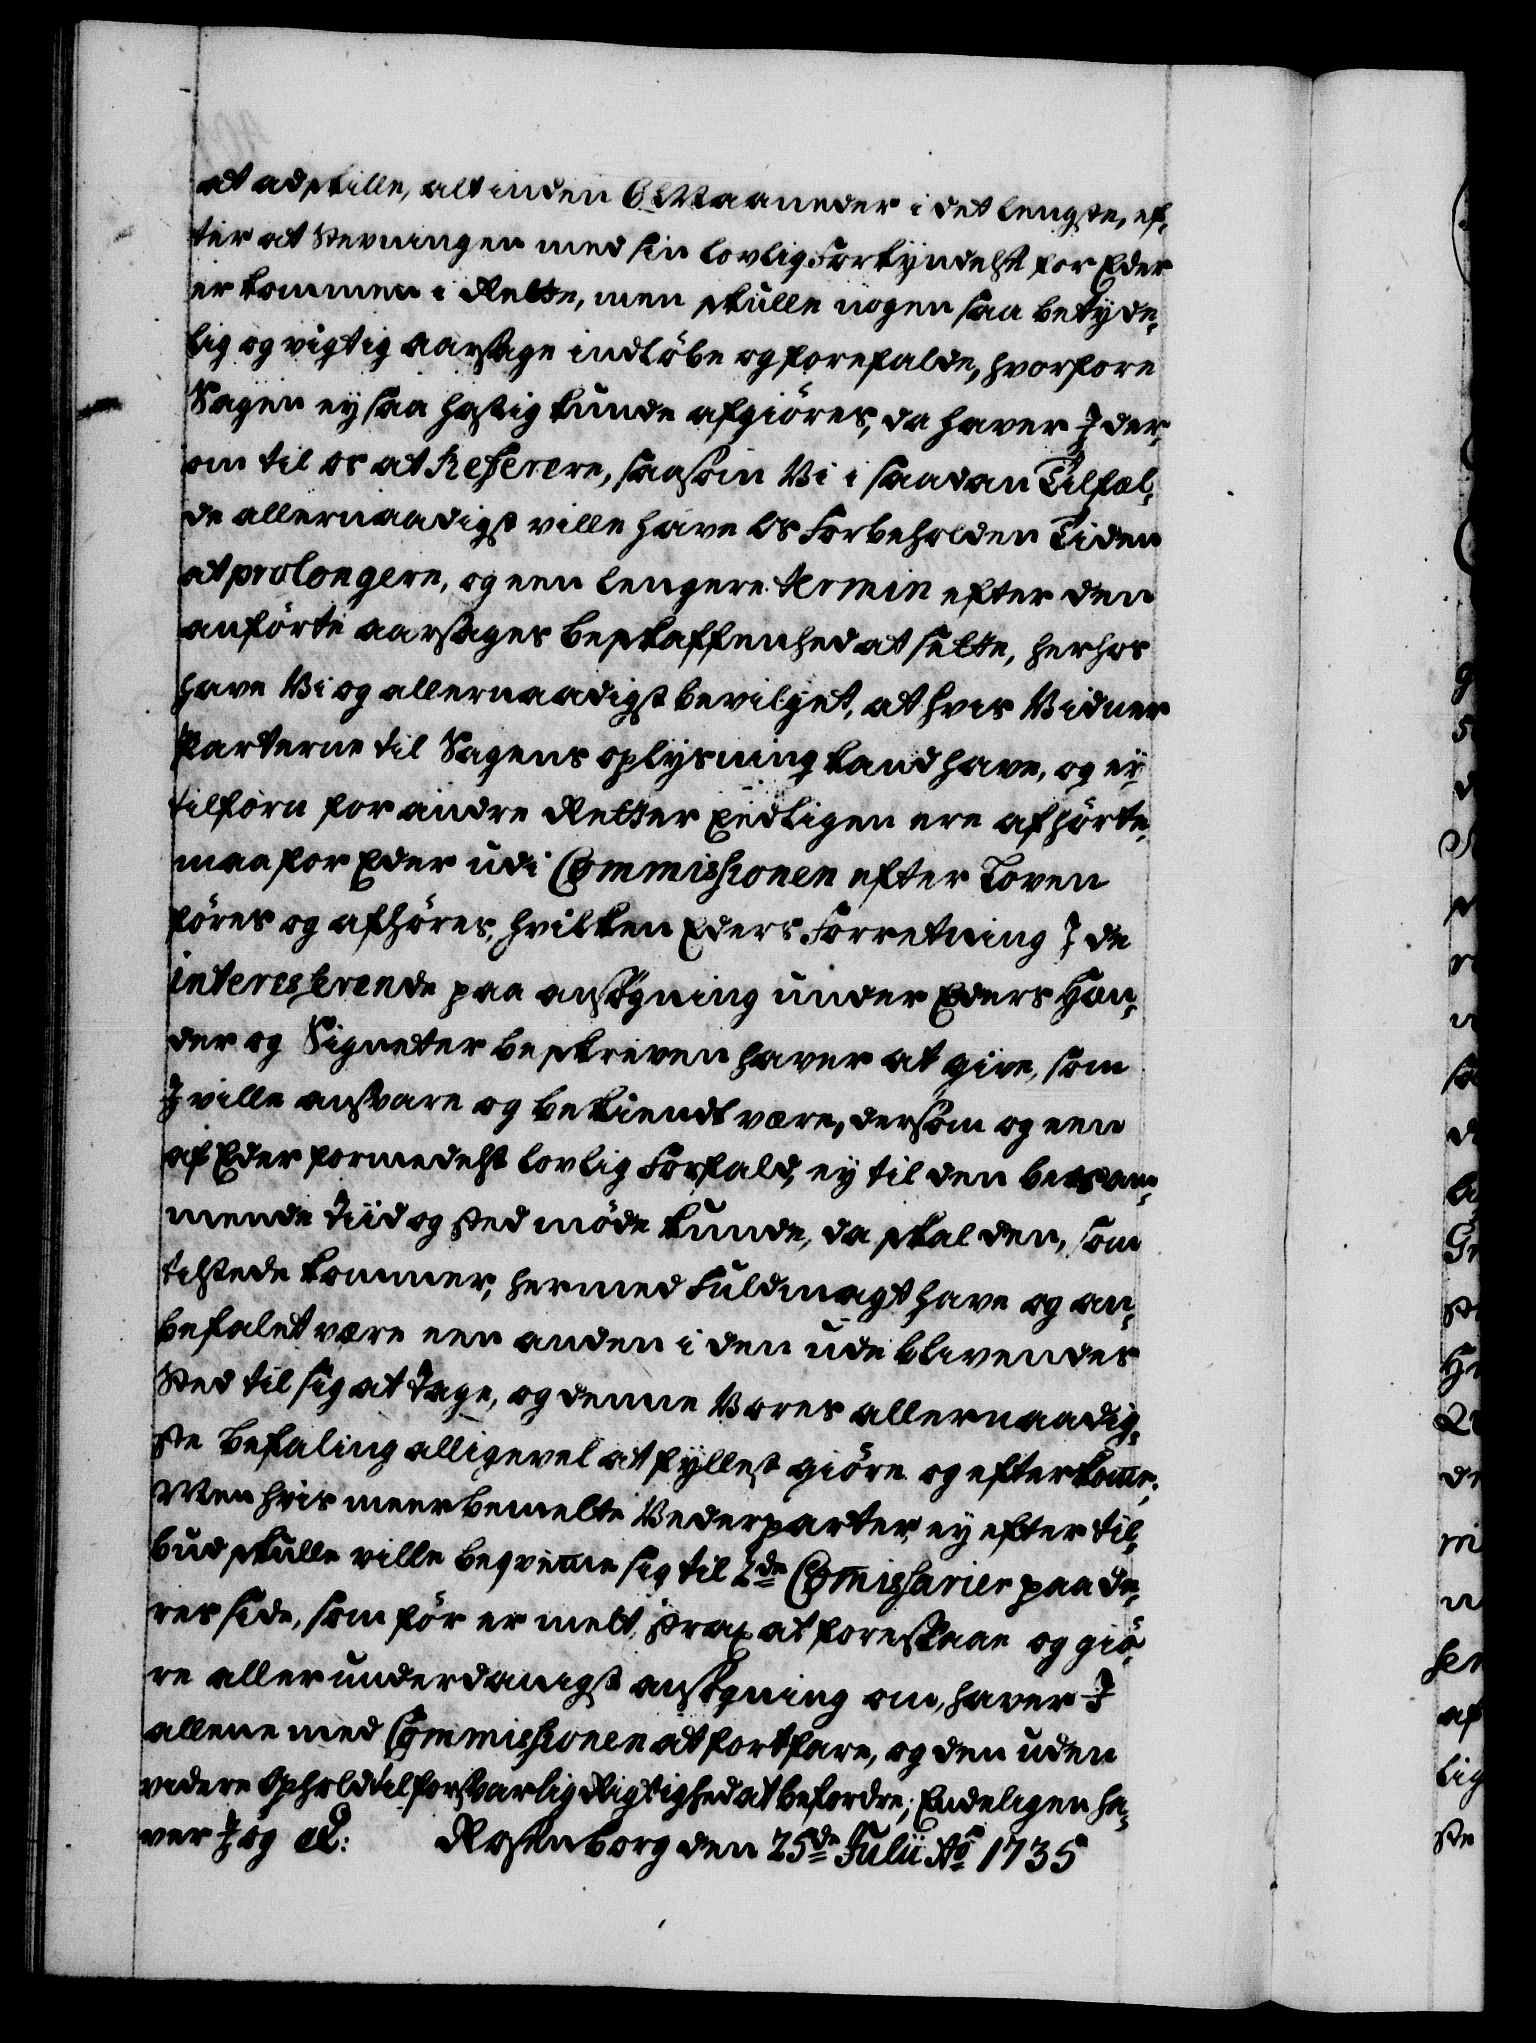 at adskille, alt inden 6 Maaneder i det lengste, ef-
ter at Stevningen med sin lovlig Forkyndelse for Eder
er kommen i Rette, men skulle nogen saa betyde-
lig og vigtig aarsage indløbe og forefalde, hvorfore
Sagen ey saa hastig kunde afgiøres, da haver I der-
om til os at Referere, saasom Vi i saadan Tilfæl-
de allernaadigst ville have Os Forbeholden Tiden
at prolongere, og een lengere termin efter den
anførte aarsages beskaffenhed at sette, herhos
have Vi og allernaadigst bevilget, at hvis Vidner
Parterne til Sagens oplysning kand have, og ey
tilforn for andre Retter Eedligen ere afhørte,
maa for Eder udi Commissionen efter Loven
føres og afhøres, hvilken Eders Forretning I de
interesserende paa ansøgning under Eders Hæn-
der og Signeter beskreven haver at give, som
I ville ansvare og bekiendt være, dersom og een
af Eder formedelst lovlig Forfald, ey til den beram-
mende Tiid og sted møde kunde, da skal den, som
tilstede kommer, hermed Fuldmagt have og an-
befalet være een anden i den udeblivendes
Sted til sig at tage, og denne Vores allernaadig-
ste befaling alligevel at fyllest giøre og efterkome;
Men hvis meerbemelte Vederparter, ey efter til-
bud skulle ville beqveme sig til 2de Comissarier paa de-
res side, som før er melt, strax at foreslaae og giø-
re allerunderdanigst ansøgning om, haver I
allene med Commissionen at fortfare, og den uden
videre Ophold til forsvarlig Rigtighed at befordre; Endeligen ha-
ver I og &: Rosenborg den 25de Julii Ao 1735